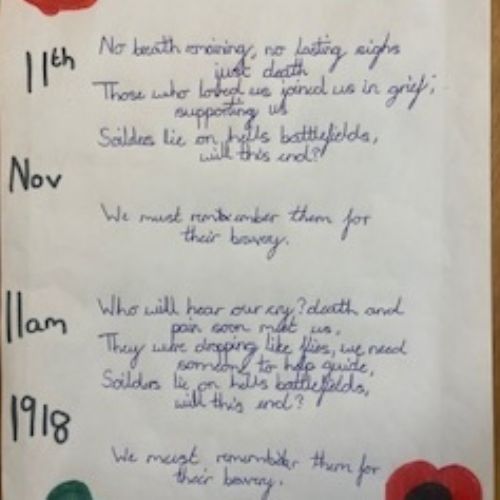 11th
No breath remaining, no lasting sighs
just death
Those who loved us joined us in grief;
supporting us
Soilders lie on hells battlefields,
will this end?
Nov
We must remember them for
their bravery.
11am
Who will hear our cry? death and
pain soon met us,
They were dropping like flies, we need
someone to help guide,
Soilders lie on hells battlefields,
will this end?
1918
We must remember them for
their bravery.